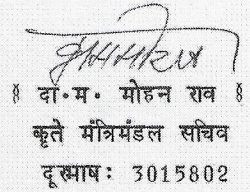 ॥ दा॰म॰ मोहन राव ॥
कृते मंत्रिमंडल सचिव
दूरभाष: 3015802